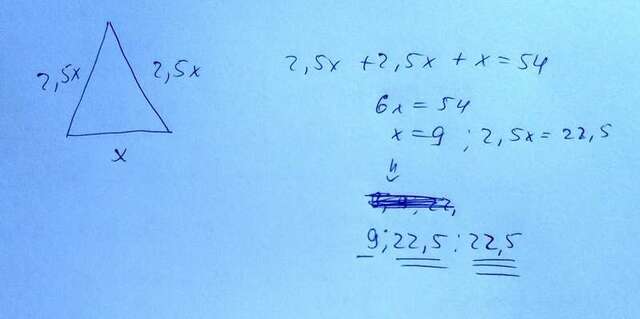 2,5x 2,5x
x
2,5x + 2,5x + x = 54
6x = 54
x = 9 ; 2,5x = 22,5
9; 22,5; 22,5